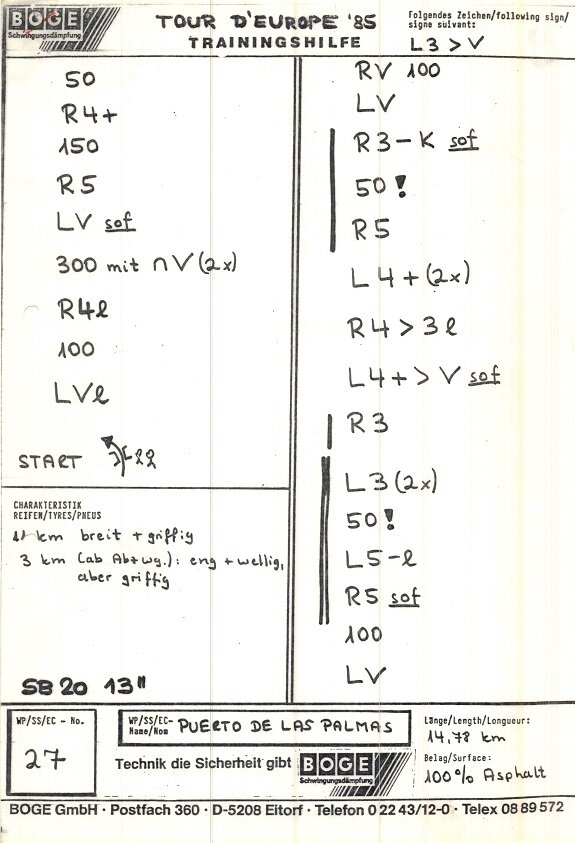 BOGE
Schwingungsdämpfung
TOUR D'EUROPE '85
TRAININGSHILFE
Folgendes Zeichen/following sign/
signe suivant:
L3 > V
50
R4+
150
R5
LV sof
300 mit ∩V (2x)
R4l
100
LVl
START
CHARAKTERISTIK
REIFEN/TYRES/PNEUS
11 km breit + griffig
3 km (ab Abzwg.): eng + wellig,
aber griffig
SB 20 13"
RV 100
LV
R3-K sof
50!
R5
L4+(2x)
R4>3l
L4+>V sof
R3
L3(2x)
50!
L5-l
R5 sof
100
LV
WP/SS/EC - No.
27
WP/SS/EC-
Name/Nom PUERTO DE LAS PALMAS
Technik die Sicherheit gibt BOGE
Schwingungsdämpfung
Länge/Length/Longueur:
14,78 km
Belag/Surface:
100% Asphalt
BOGE GmbH · Postfach 360 · D-5208 Eitorf · Telefon 0 22 43/12-0 · Telex 08 89 572